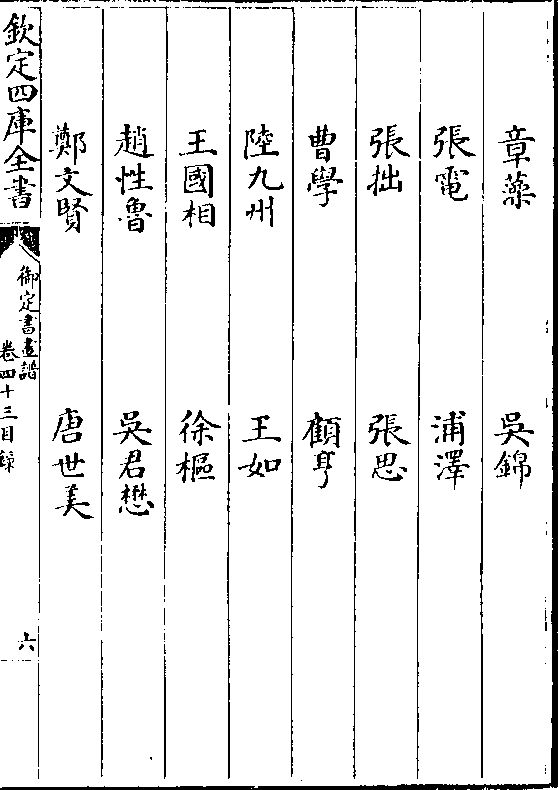 章藻 吳錦
張電 浦澤
張拙 張思
曹學 顧亨
陸九州 王如
王國相 徐樞
趙性魯 吳君懋
鄭文賢 唐世美
欽定四庫全書
御定書畫譜
卷四十三目錄
六